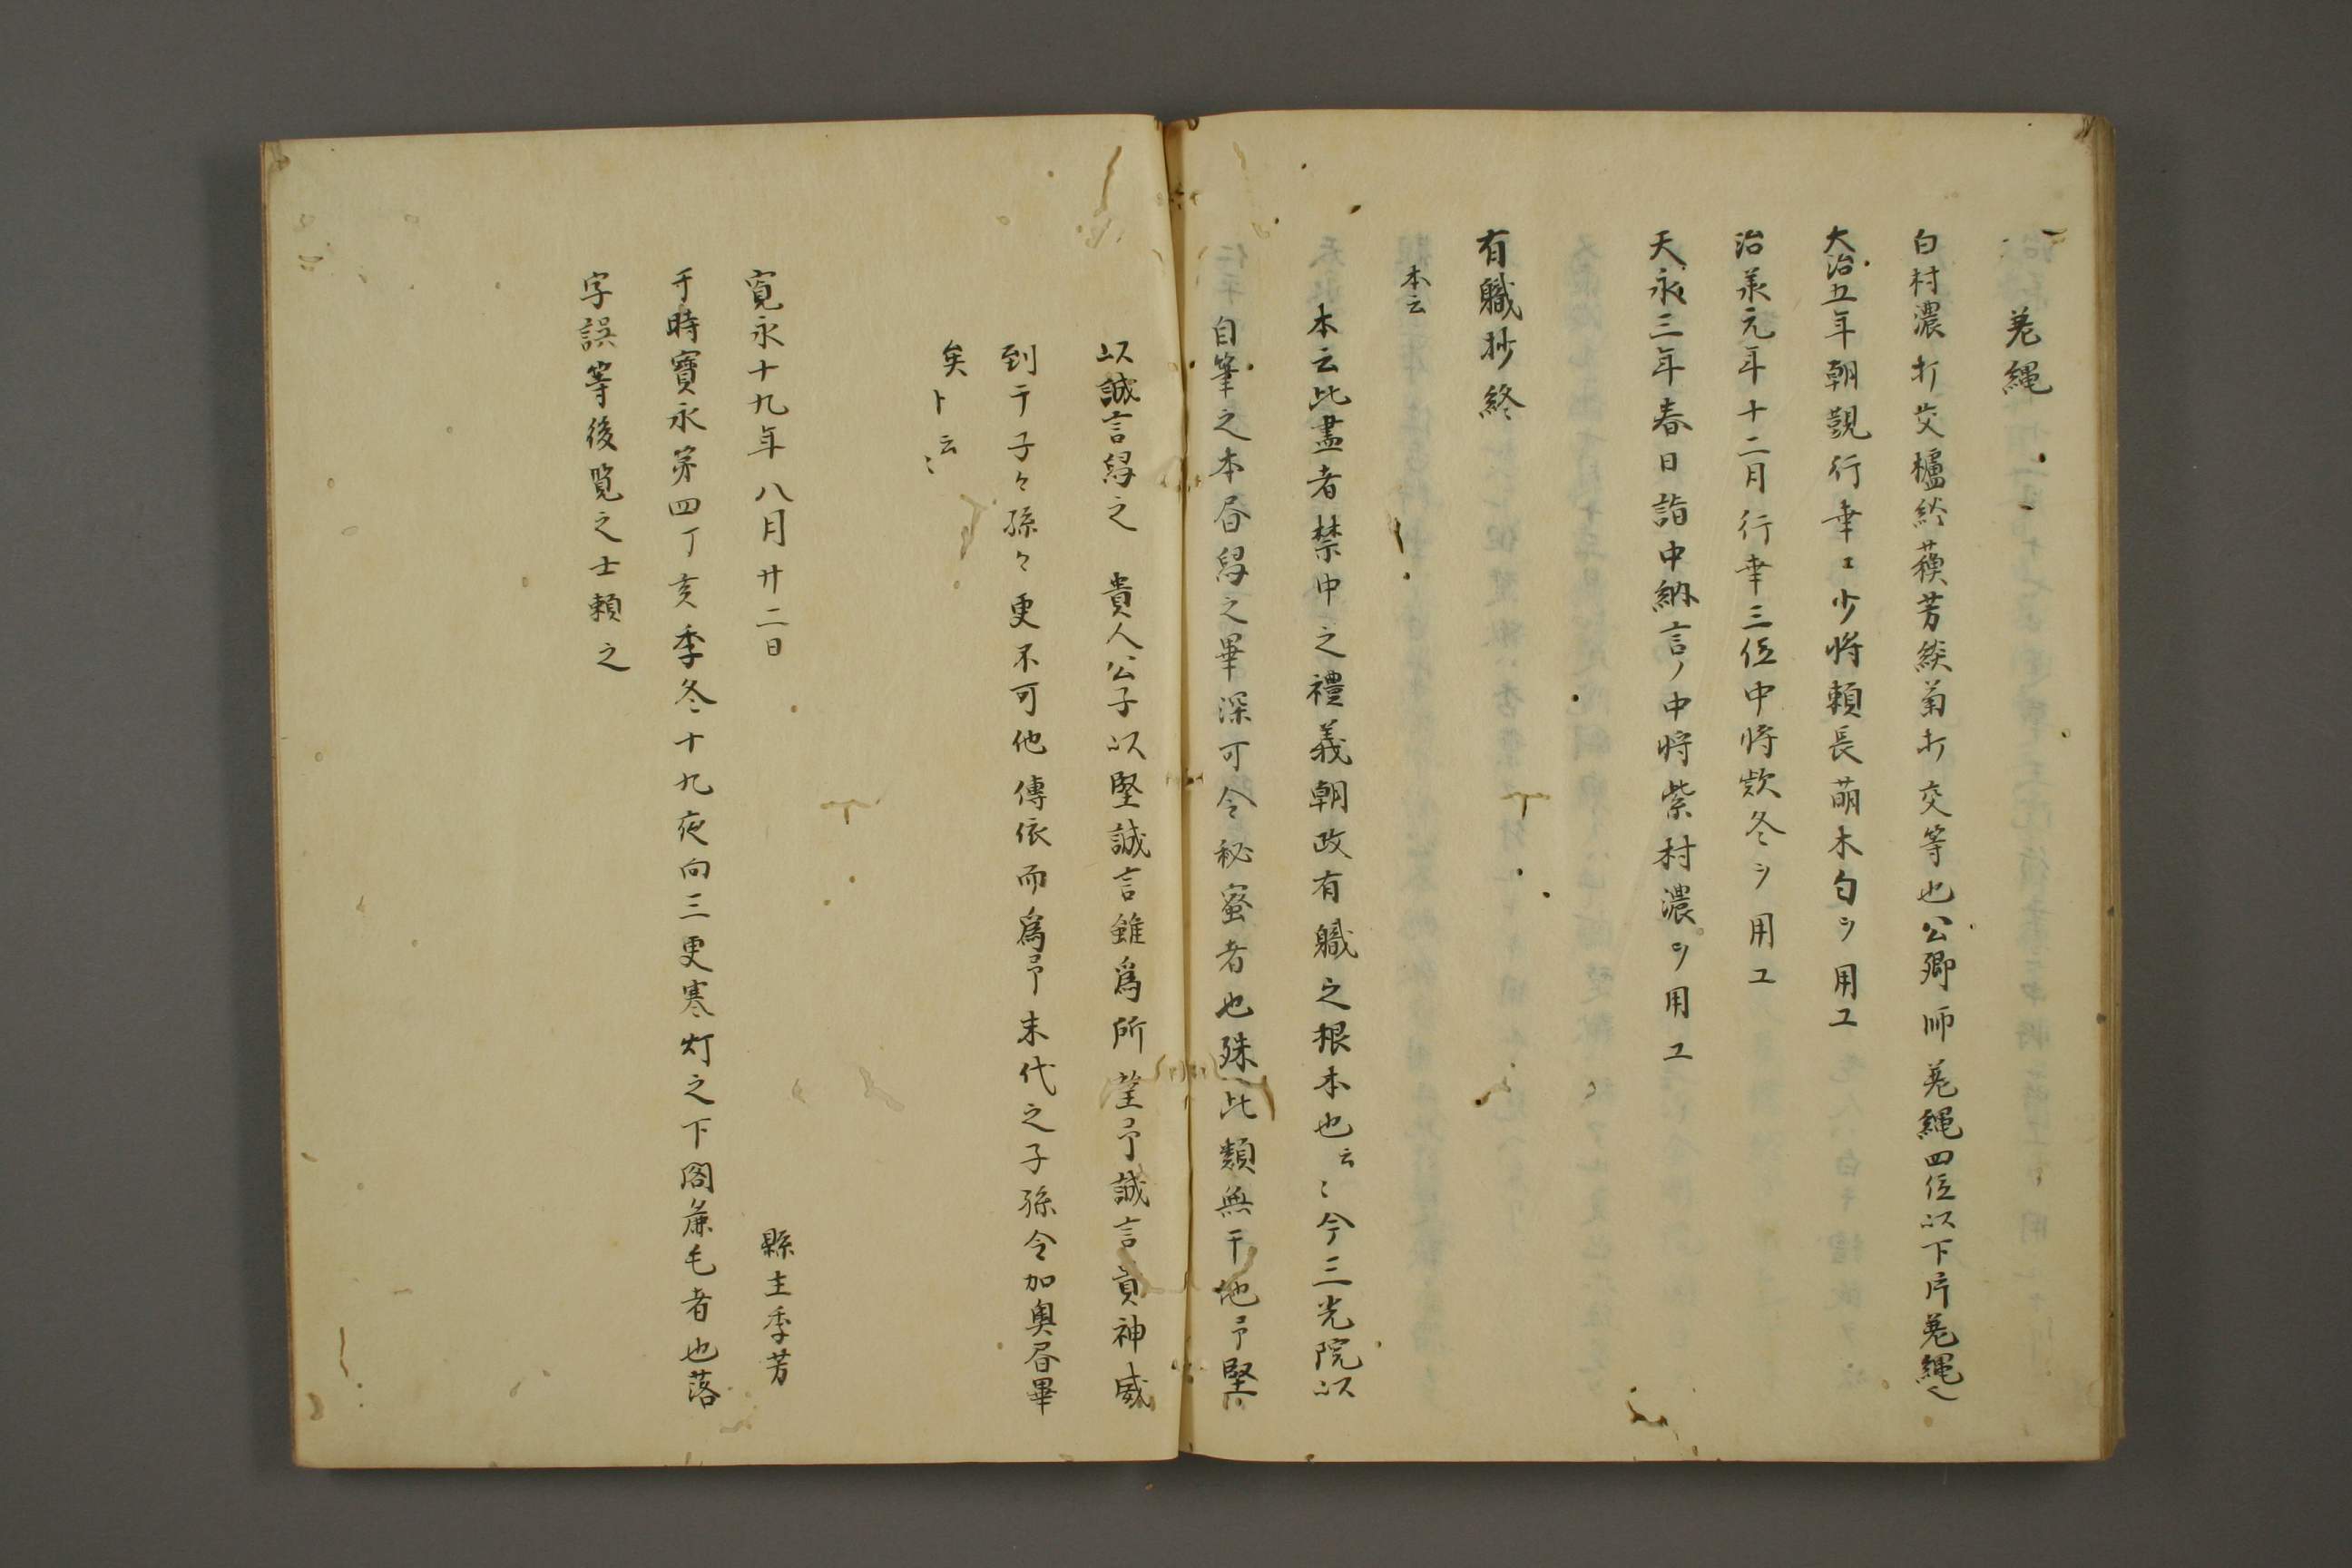 羗縄
白村濃打交櫨紾蘓芳緂菊打交等也公卿師羗縄四位以下片羗縄〱
大治五年朝覲行幸ニ少将頼長萌木匂ヲ用ユ
治羕元年十二月行幸三位中将欵冬ヲ用ユ
天永三年春日詣中納言ノ中将紫村濃ヲ用ユ
有職抄終
本云
本云此盡者禁中之禮義朝政有職之根本也云〻今三光院以
自筆之本昏舄之畢深可令秘蜜者也殊此類無于他予堅
以誠言舄之　貴人公子以堅誠言雖爲所望予誠言貢神威
到于子々孫々更不可他傳依而爲予末代之子孫令加奥昏畢
矣ト云〻
寛永十九年八月廿二日　縣主季芳
于時寶永第四丁亥季冬十九夜向三更寒灯之下閣𠔥毛者也落
字誤等後覧之士頼之